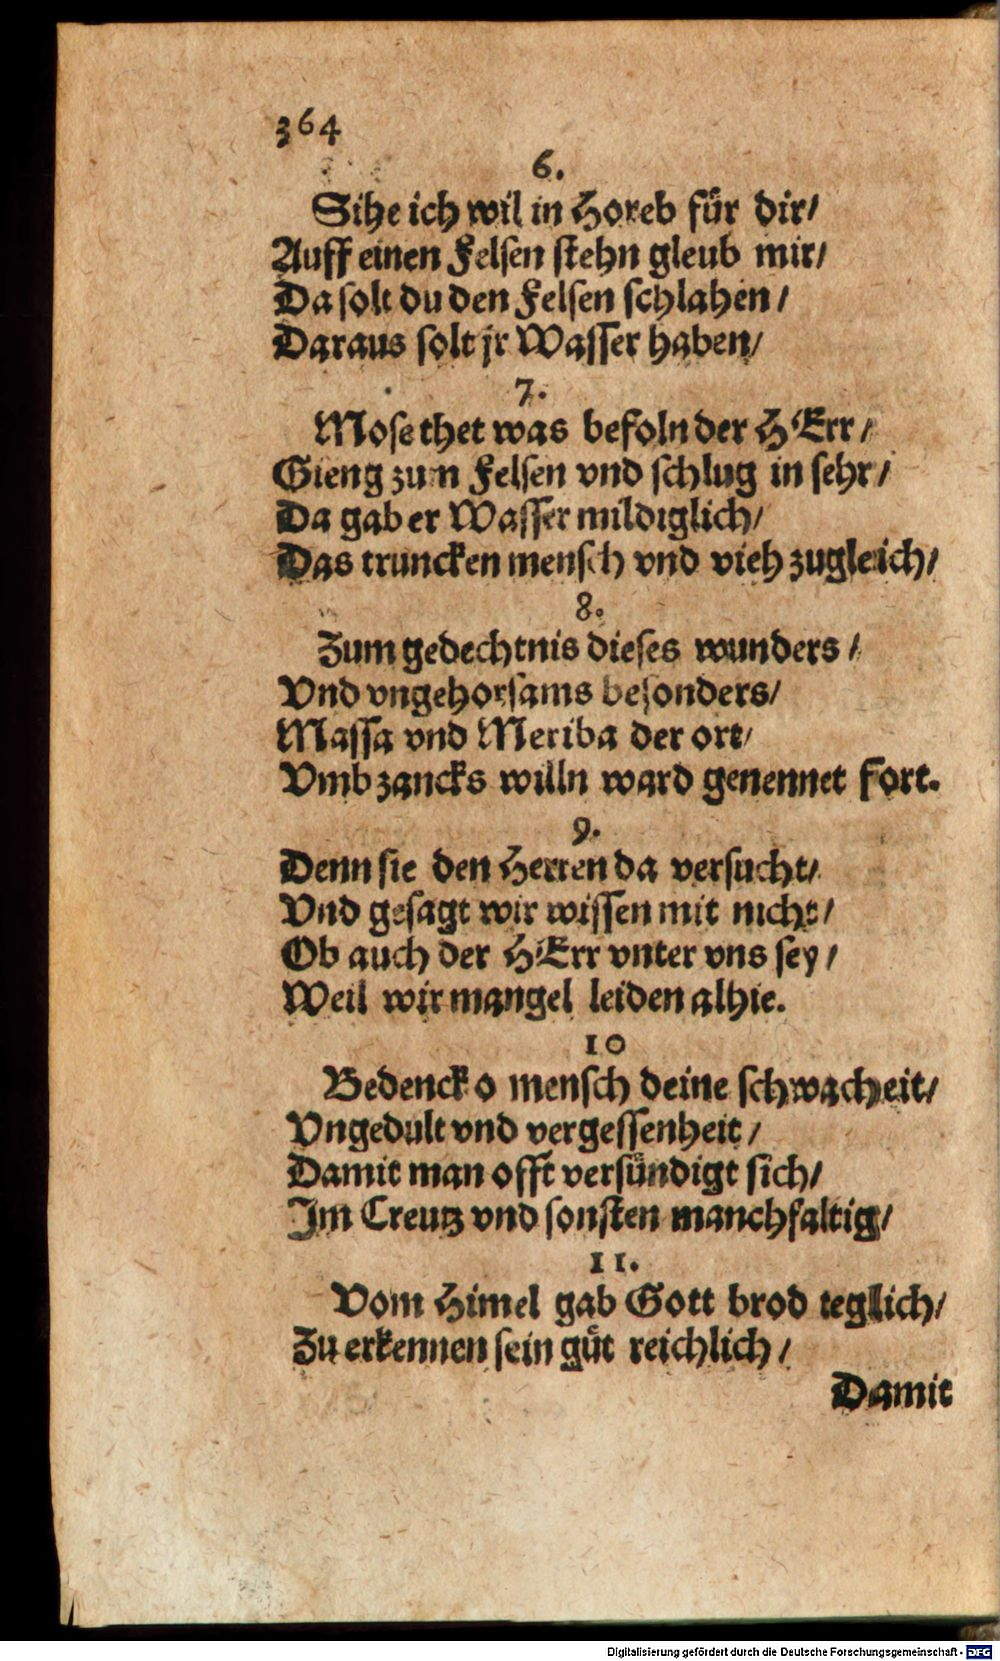 364
6.
Sihe ich wil in Horeb für dir/
Auff einen Felsen stehn gleub mir/
Da solt du den Felsen schlahen/
Daraus solt jr Wasser haben/
7.
Mose thet was befoln der HErr/
Gieng zum Felsen vnd schlug in sehr/
Da gab er Wasser mildiglich/
Das truncken mensch vnd vieh zugleich/
8.
Zum gedechtnis dieses wunders/
Vnd vngehorsams besonders/
Massa vnd Meriba der ort/
Vmb zancks willn ward genennet fort.
9.
Denn sie den Herren da versucht/
Vnd gesagt wir wissen mit nicht/
Ob auch der HErr vnter vns sey/
Weil wir mangel leiden alhie.
10
Bedenck o mensch deine schwacheit/
Vngedult vnd vergessenheit/
Damit man offt versündigt sich/
Im Creutz vnd sonsten manchfaltig/
11.
Vom Himel gab Gott brod teglich/
Zu erkennen sein güt reichlich/
Damit
Digitalisierung gefördert durch die Deutsche Forschungsgemeinschaft - DFG